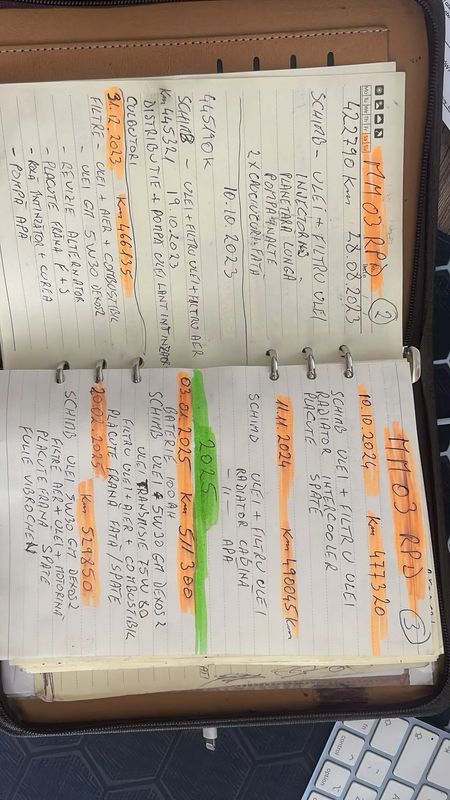 MM 03 RPD 2
422790 Km 28.08.2023
SCHIMB - ULEI + FILTRU ULEI
INJECTOR NO
PLANETARA LUNGA
POMPA INALTE
2 X CAUCIUCURI FATA
10.10.2023
445190 K
SCHIMB - ULEI + FILTRU ULEI + FILTRU AER
Km 445321 19.10.2023
DISTRIBUTIE + POMPA ULEI LANT INTINZATOR
CULBUTORI
31.12.2023 Km 466135
FILTRE ULEI + AIER + COMBUSTIBIL
- ULEI GM 5W30 DEXOS2
- REVIZIE ALTERNATOR
- PLACUTE FRANA F + S
- ROLA INTINZATOR + CUREA
- POMPĂ APA
MM 03 RPD 3
10.10.2024 Km 477320
SCHIMB ULEI + FILTRU ULEI
RADIATOR INTERCOOLER
PLACUTE SPATE
11.11.2024 Km 490045 km
SCHIMB ULEI + FILTRU ULEI
RADIATOR CABINA
- 11 - APA
2025
03.01.2025 Km 511300
BATERIE 100AH
SCHIMB ULEI 5W30 GM DEXOS 2
ULEI TRANSMISIE 75W80
FILTRU ULEI + AIER + COMBUSTIBIL
PLACUTE FRANA FATĂ / SPATE
20.02.2025 Km 529850
SCHIMB ULEI 5W30 GM DEXOS2
FILTRE AER + ULEI + MOTORINA
PLACUTE FRANA SPATE
FULIE VIBROCHEN
control
option